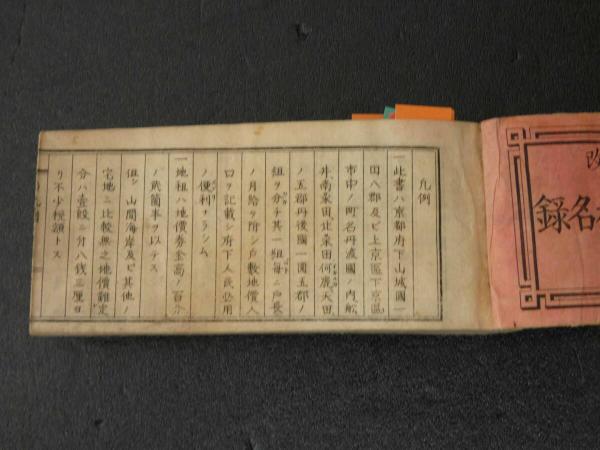 改
録名
凡例
一此書ハ京都府下山城國一
國八郡及ビ上京區下京區
市中ノ町名丹波國ノ内船
井南桒田北桒田何鹿天田
ノ五郡丹後國一圓五郡ノ
組ヲ分チ其一組毎ニ戸長
ノ月給ヲ附シ戸數地價人
口ヲ記載シ府下人民必用
ノ便利ナラシム
一地租ハ地價券金高ノ百分
ノ貮箇半ヲ以テス
但シ山間海岸及ビ其他ノ
宅地ニ比較無之地價難定
分ハ壹段ニ付八銭三厘ヨ
リ不少税額トス